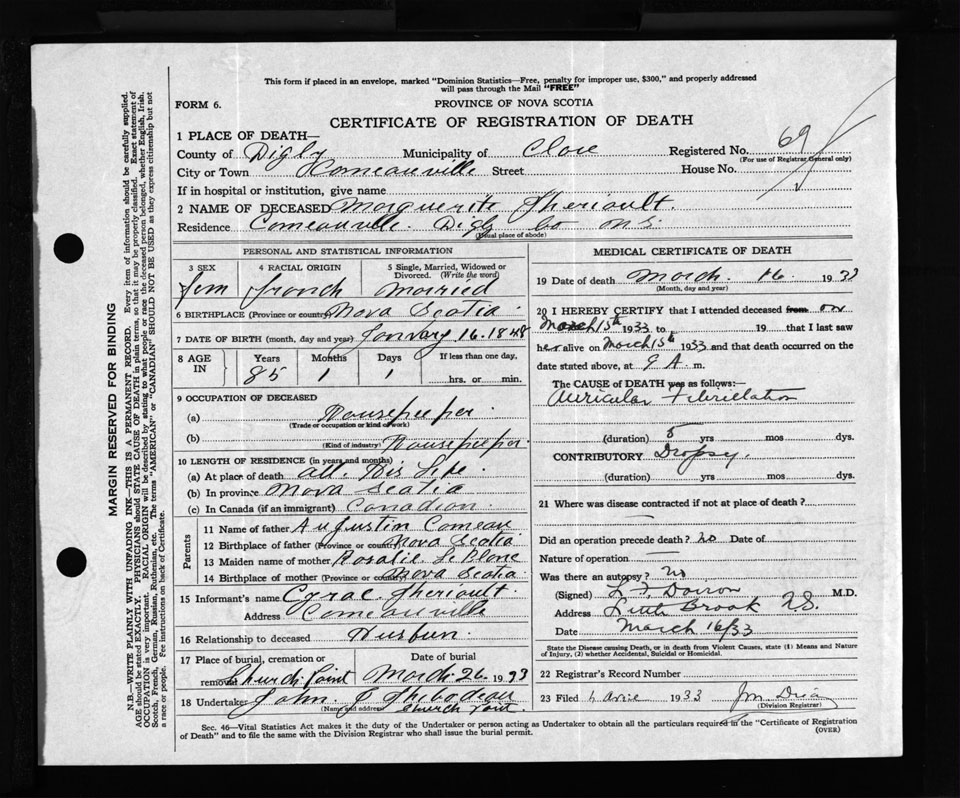 This form if placed in an envelope, marked "Dominion Statistics—Free, penalty for improper use, $300," and properly addressed
will pass through the Mail "FREE"
FORM 6.
PROVINCE OF NOVA SCOTIA
CERTIFICATE OF REGISTRATION OF DEATH
1 PLACE OF DEATH—
County of Digby Municipality of Clare Registered No. 69
(For use of Registrar General only)
City or Town Comeauville Street House No.
If in hospital or institution, give name
2 NAME OF DECEASED Marguerite Theriault.
Residence Comeauville. Digby Co N.S.
(Usual place of abode)
PERSONAL AND STATISTICAL INFORMATION
3 SEX 4 RACIAL ORIGIN 5 Single, Married, Widowed or Divorced. (Write the word)
fem french Married
6 BIRTHPLACE (Province or country) Nova Scotia
7 DATE OF BIRTH (month, day and year) January 16. 1848
8 AGE IN Years Months Days If less than one day,
85 1 1 hrs. or min.
9 OCCUPATION OF DECEASED
(a) Housekeeper.
(Trade or occupation or kind of work)
(b) Housekeeper.
(Kind of industry)
10 LENGTH OF RESIDENCE (in years and months)
(a) At place of death all. His Life.
(b) In province Nova Scotia
(c) In Canada (if an immigrant) Canadian.
Parents
11 Name of father Augustin Comeau
12 Birthplace of father (Province or country) Nova Scotia
13 Maiden name of mother Rosalie LeBlanc
14 Birthplace of mother (Province or country) Nova Scotia
15 Informant's name Cyrac Theriault.
Address Comeauville
16 Relationship to deceased Husbun.
17 Place of burial, cremation or removal Church Point Date of burial March 26. 1933
18 Undertaker John C Thibodeau
(Name and address) Church Point.
MEDICAL CERTIFICATE OF DEATH
19 Date of death March. 16. 1933
(Month, day and year)
20 I HEREBY CERTIFY that I attended deceased from on
March 15th 1933 to 19 that I last saw
her alive on March 15th 1933 and that death occurred on the
date stated above, at 9 A. m.
The CAUSE OF DEATH was as follows:—
Auricular Fibrillation
(duration) 5 yrs mos dys.
CONTRIBUTORY Dropsy.
(duration) yrs mos dys.
21 Where was disease contracted if not at place of death?
Did an operation precede death? no Date of
Nature of operation —
Was there an autopsy? no
(Signed) M.D.
Address Little Brook N.S.
Date March 16/33
State the Disease causing Death, or in death from Violent Causes, state (1) Means and Nature
of Injury, (2) whether Accidental, Suicidal or Homicidal.
22 Registrar's Record Number
23 Filed 1933
(Division Registrar)
Sec. 46—Vital Statistics Act makes it the duty of the Undertaker or person acting as Undertaker to obtain all the particulars required in the "Certificate of Registration
of Death" and to file the same with the Division Registrar who shall issue the burial permit.
(OVER)
MARGIN RESERVED FOR BINDING
N.B.—WRITE PLAINLY WITH UNFADING INK—THIS IS A PERMANENT RECORD. Every item of information should be carefully supplied.
AGE should be stated EXACTLY. PHYSICIANS should STATE CAUSE OF DEATH in plain terms, so that it may be properly classified. Exact statement of
OCCUPATION is very important. RACIAL ORIGIN will be described by stating to what people or race the deceased person belonged, whether English, Irish,
Scotch, French, German, Russian, Ruthenian, etc. The terms "AMERICAN" or "CANADIAN" SHOULD NOT BE USED as they express citizenship but not
a race or people. Fee instructions on back of Certificate.